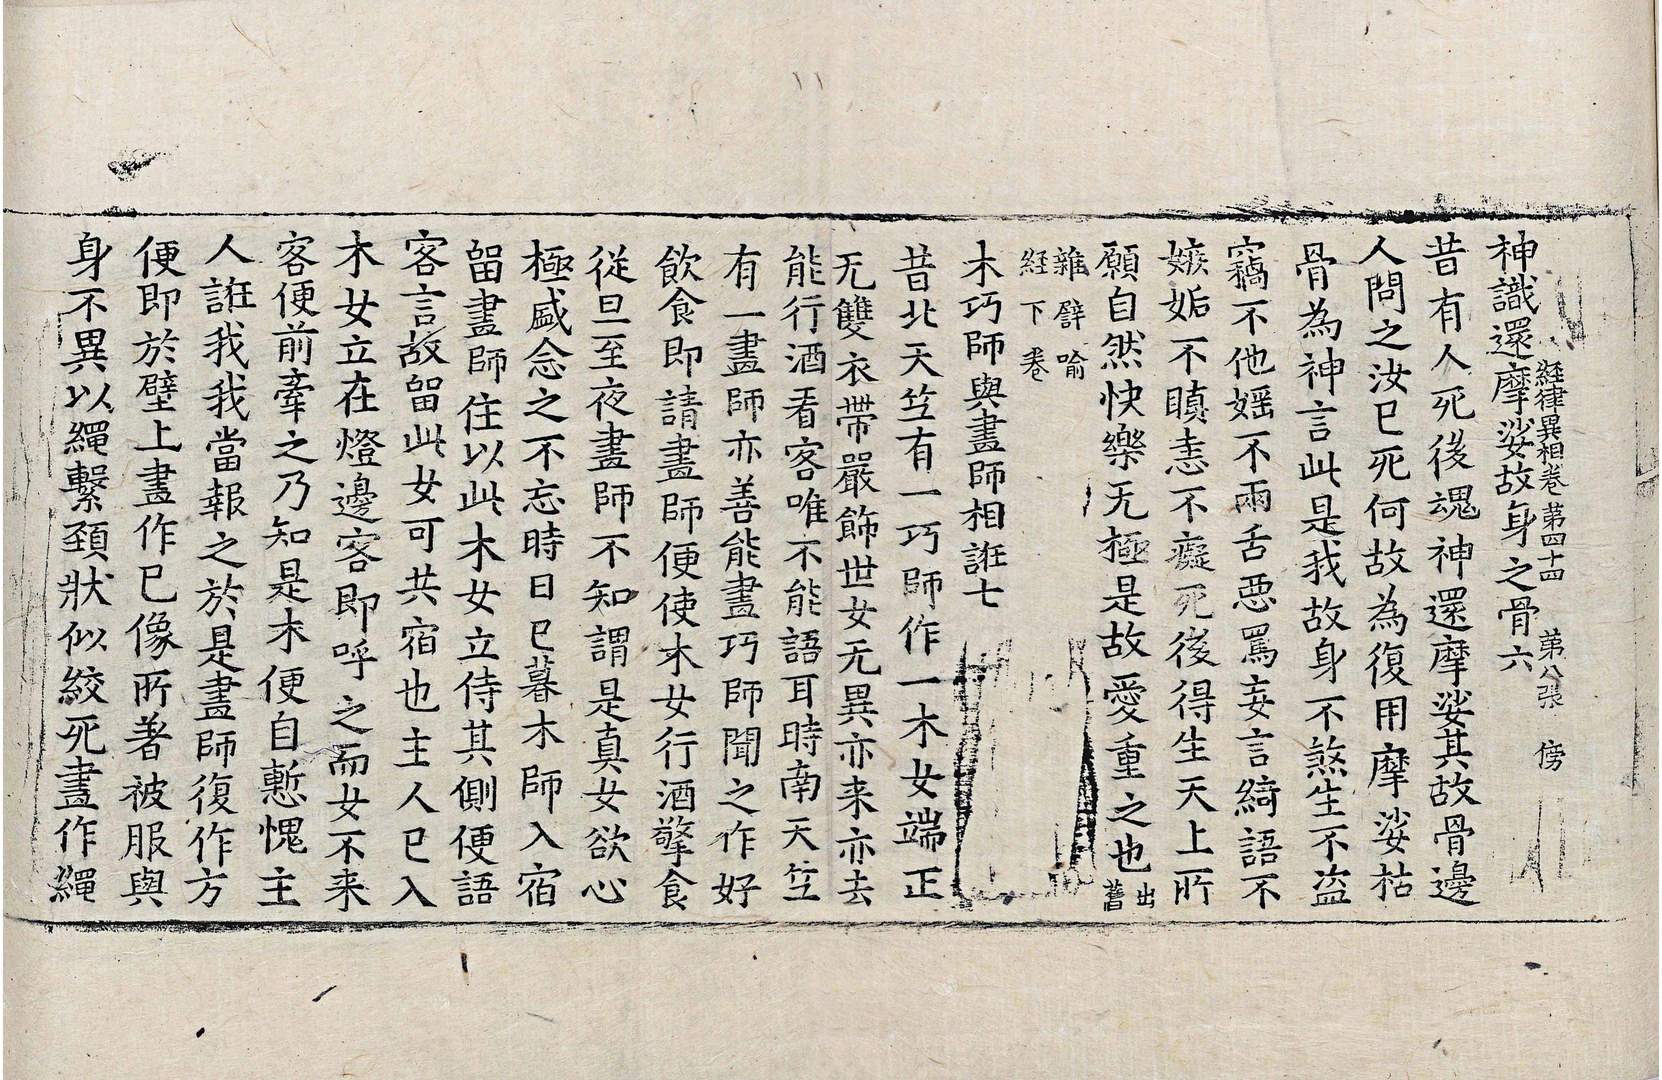 経律異相卷第四十四 第八張 傍
神識還摩娑故身之骨六
昔有人死後魂神還摩娑其故骨邊
人問之汝已死何故為復用摩娑枯
骨為神言此是我故身不煞生不盗
竊不他婬不兩舌惡罵妄言綺語不
嫉妬不瞋恚不癡死後得生天上所
願自然快樂无極是故愛重之也出舊
雜譬喻
経下卷
木巧師與畫師相誑七
昔北天竺有一巧師作一木女端正
无雙衣帶嚴飾世女无異亦来亦去
能行酒看客唯不能語耳時南天竺
有一畫師亦善能畫巧師聞之作好
飲食即請畫師便使木女行酒擎食
從旦至夜畫師不知謂是真女欲心
極盛念之不忘時日已暮木師入宿
留畫師住以此木女立侍其側便語
客言故留此女可共宿也主人已入
木女立在燈邊客即呼之而女不来
客便前牽之乃知是木便自慙愧主
人誑我我當報之於是畫師復作方
便即於壁上畫作已像所著被服與
身不異以繩繫頸狀似絞死畫作繩